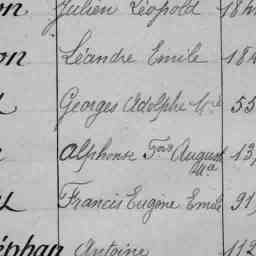 on Julien Léopold 184
on Léandre Emile 184
Georges Adolphe M^ie 55
Alphonse F^ois August M^ie 13,
Francis Eugène Emile 91,
éphan Antoine 112